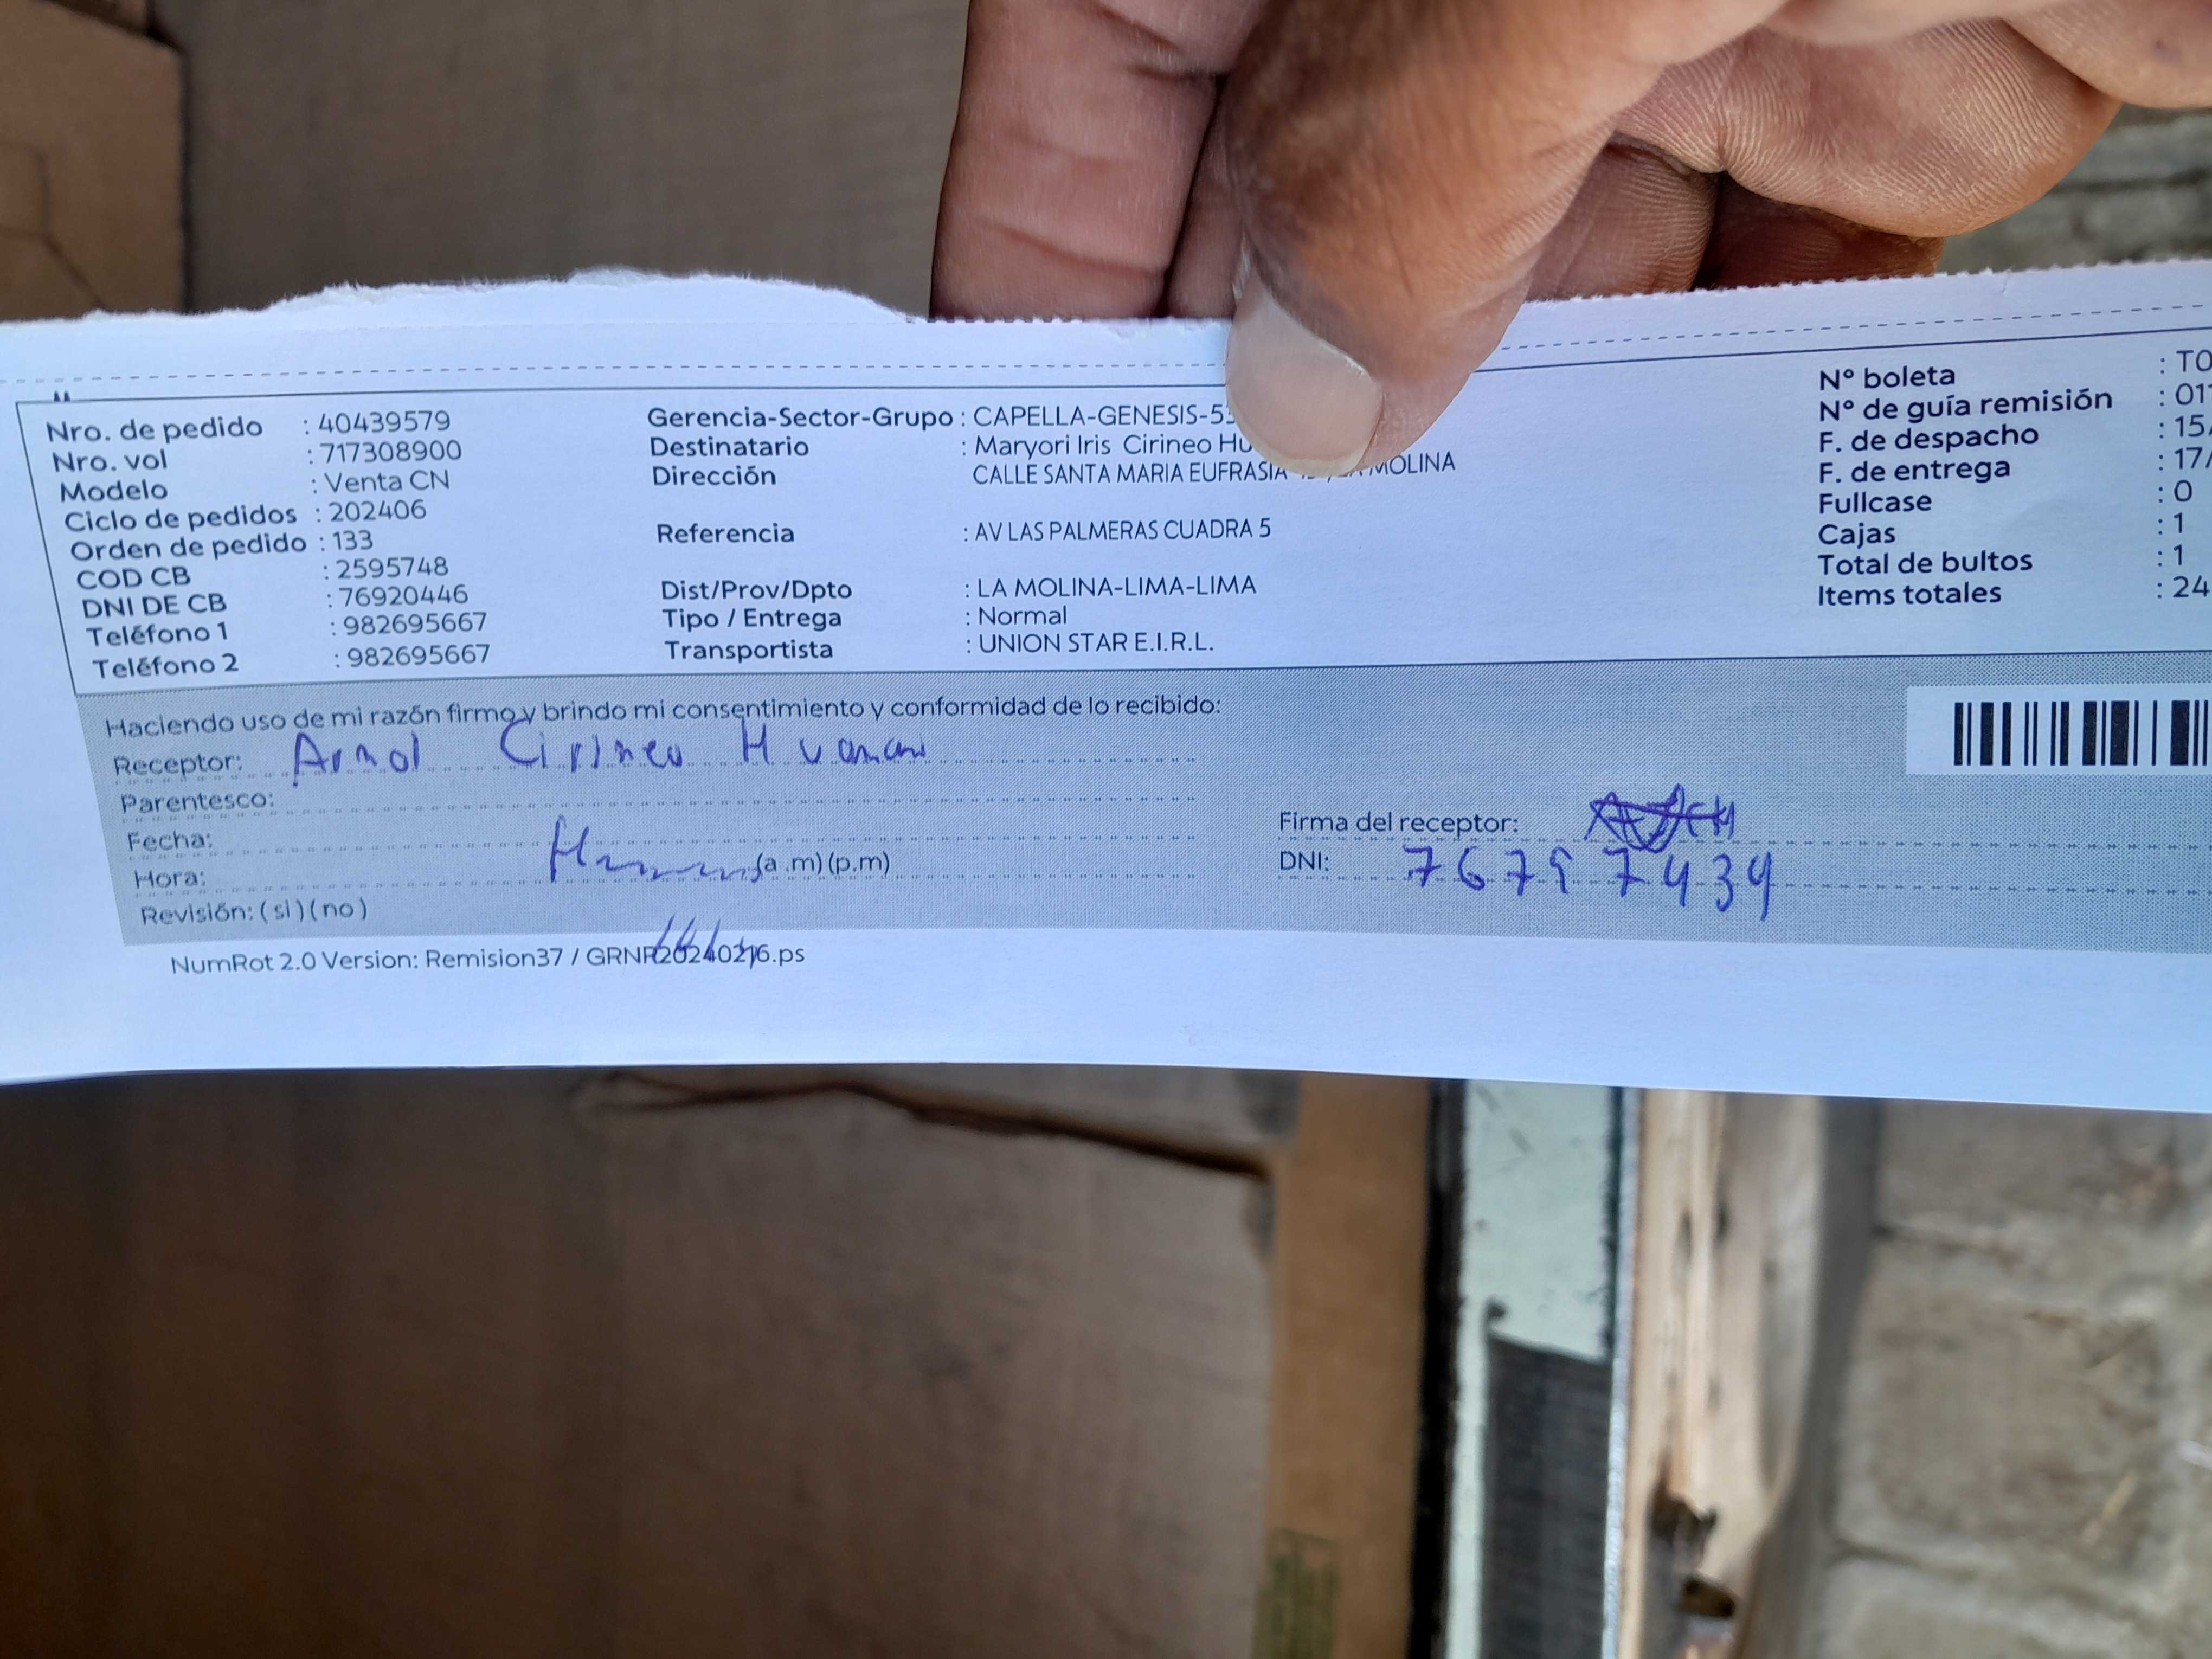 Nro. de pedido : 40439579
Nro. vol : 717308900
Modelo : Venta CN
Ciclo de pedidos : 202406
Orden de pedido : 133
COD CB : 2595748
DNI DE CB : 76920446
Teléfono 1 : 982695667
Teléfono 2 : 982695667
Gerencia-Sector-Grupo : CAPELLA-GENESIS-5
Destinatario : Maryori Iris Cirineo Hu
Dirección CALLE SANTA MARIA EUFRASIA MOLINA
Referencia : AV LAS PALMERAS CUADRA 5
Dist/Prov/Dpto : LA MOLINA-LIMA-LIMA
Tipo / Entrega : Normal
Transportista : UNION STAR E.I.R.L.
N° boleta : T0
N° de guía remisión : 01
F. de despacho : 15/
F. de entrega : 17/
Fullcase : 0
Cajas : 1
Total de bultos : 1
Items totales : 24
Haciendo uso de mi razón firmo y brindo mi consentimiento y conformidad de lo recibido:
Receptor: Arnol Cirineo Huaman
Parentesco:
Fecha:
Hora: (a.m)(p.m)
Revisión: (si)(no)
Firma del receptor:
DNI: 76797439
NumRot 2.0 Version: Remision37 / GRNP20240216.ps